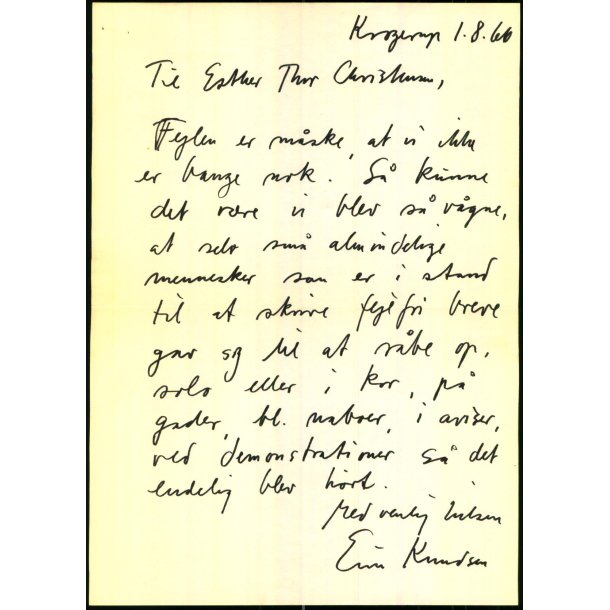 Krogerup 1.8.66
Til Esther Thor Christensen,
Fejlen er måske, at vi ikke
er bange nok. Så kunne
det være vi blev så vågne,
at selv små almindelige
mennesker som er i stand
til at skrive fejlfri breve
gav sig til at råbe op,
solo eller i kor, på
gader, bl. naboer, i aviser,
ved demonstrationer så det
endelig blev hørt.
Med venlig hilsen
Erik Knudsen